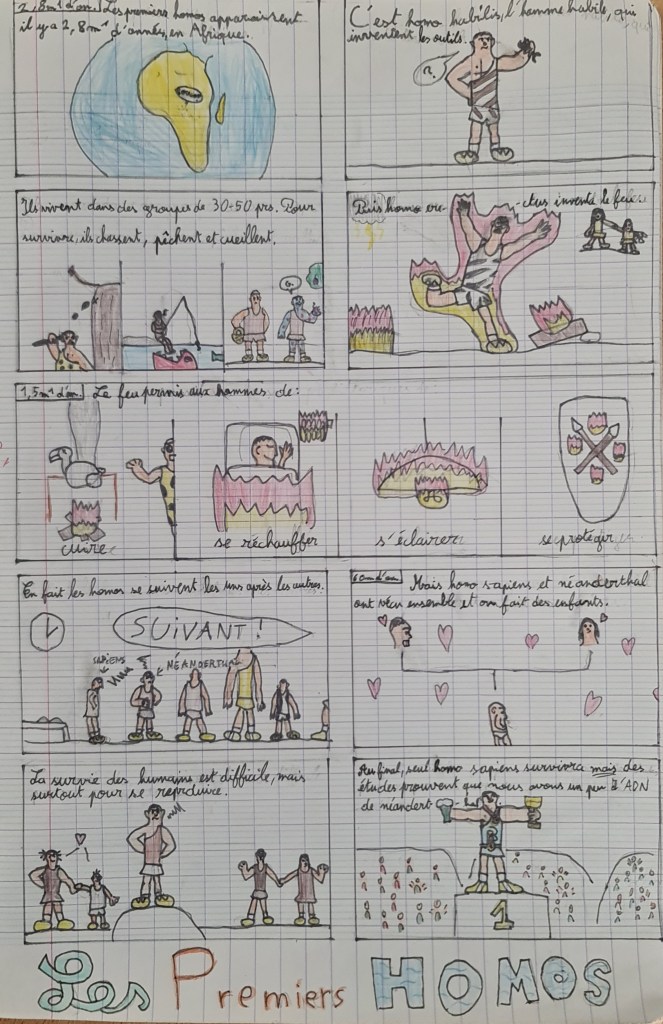 2,8m¹ d'an. Les premiers homos apparaissent
il y a 2,8m¹ d'années, en Afrique.
C'est homo habilis, l'homme habile, qui
inventent les outils.
?
Ils vivent dans des groupes de 30-50 prs. Pour
survivre, ils chassent, pêchent et cueillent.
Puis homo ere- -ctus inventé le feu.
1,5m¹ d'an. Le feu permis aux hommes de:
cuire
se réchauffer
s'éclairer
se protégir
En fait les homos se suivent les uns après les autres.
SUIVANT !
SAPIENS
NÉANDERTH
Mais homo sapiens et néanderthal
ont vécu ensemble et on fait des enfants.
La survie des humains est difficile, mais
surtout pour se reproduire.
Au final, seul homo sapiens survivra mais des
études prouvent que nous avons un peu d'ADN
de néandert
1
Les Premiers HOMOS